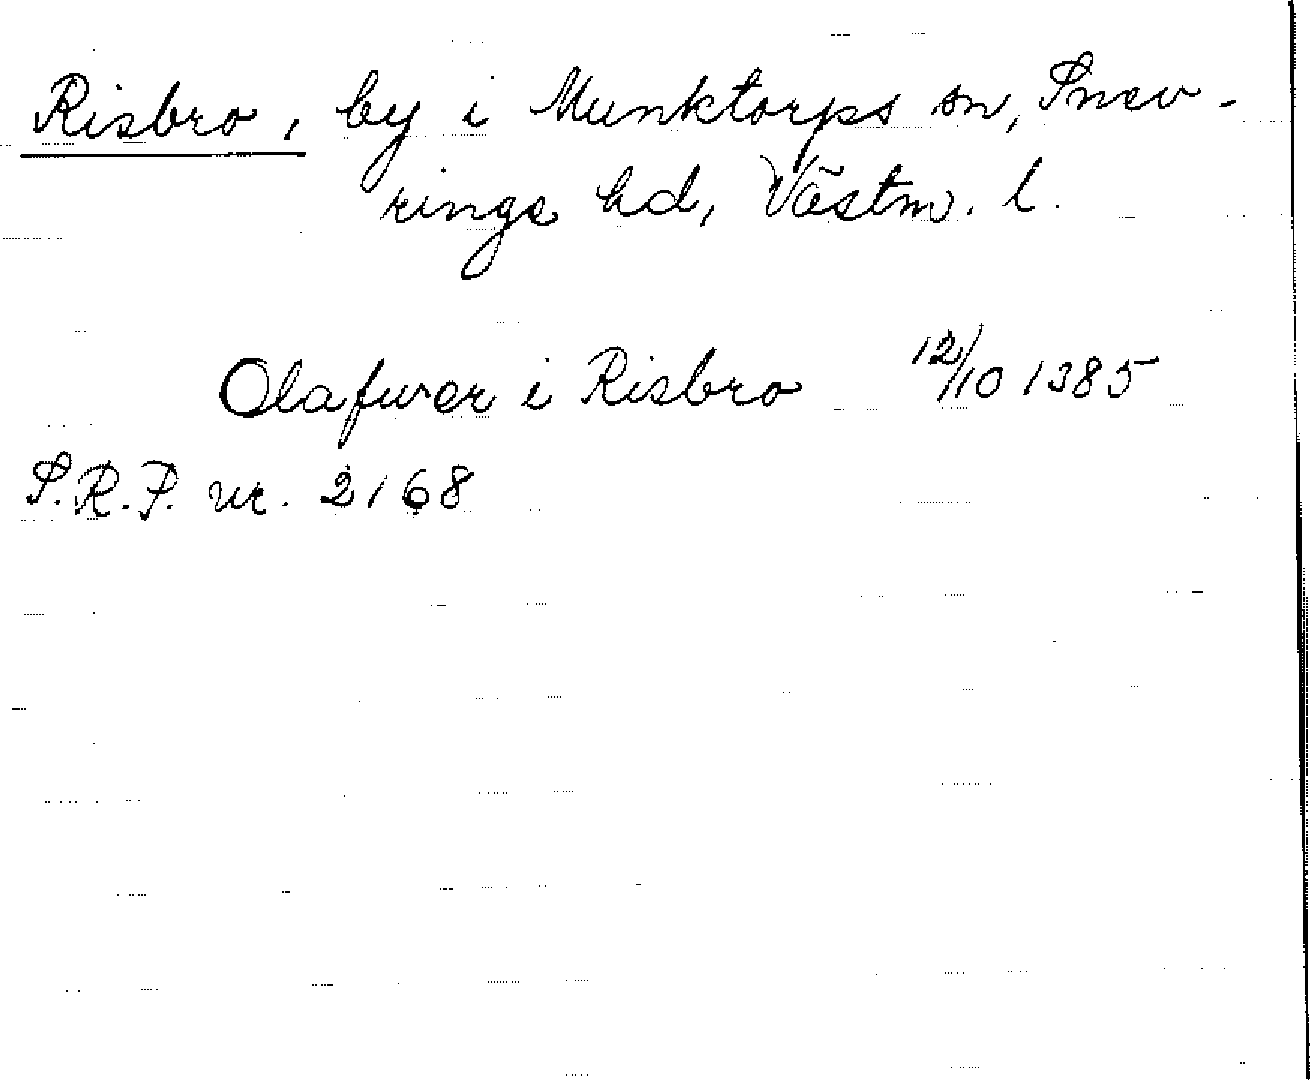 Risbro, by i Munktorps sn, Snev-
rings hd, Västm. l.
Olafwer i Risbro 12/10 1385
S.R.P. nr. 2168